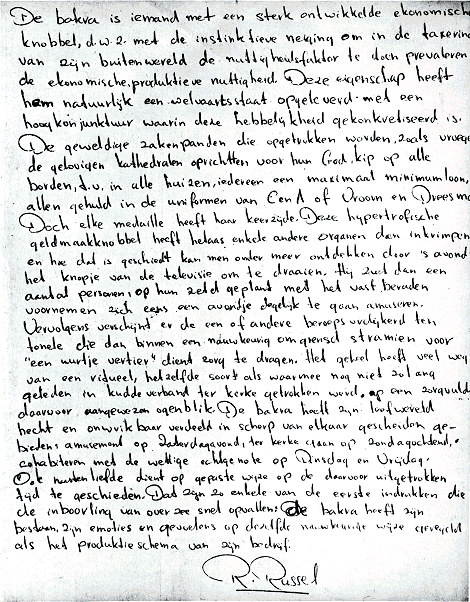 De bakra is iemand met een sterk ontwikkelde ekonomische
knobbel, d.w.z. met de instinktieve neiging om in de taxering
van zijn buitenwereld de nuttigheidsfaktor te doen prevaleren
de ekonomische, produktieve nuttigheid. Deze eigenschap heeft
hem natuurlijk een welvaartsstaat opgeleverd met een
hoogkonjunktuur waarin deze hebbelijkheid gekonkretiseerd is.
De geweldige zakenpanden die opgetrokken worden, zoals vroeger
de gelovigen kathedralen oprichtten voor hun God, kip op alle
borden, t.v. in alle huizen, iedereen een maximaal minimumloon,
allen gehuld in de uniformen van C en A of Vroom en Dreesma
Doch elke medaille heeft haar keerzijde. Deze hypertrofische
geldmaakknobbel heeft helaas enkele andere organen dan inkrimpen
en hoe dat is geschiedt kan men onder meer ontdekken door 's avond
het knopje van de televisie om te draaien. Hij ziet dan een
aantal personen, op hun zetel geplant met het vast beraden
voornemen zich eens een avondje degelijk te gaan amuseren.
Vervolgens verschijnt er de een of andere beroeps vrolijkerd ten
tonele die dan binnen een nauwkeurig omgrensd stramien voor
"een uurtje vertier" dient zorg te dragen. Het geheel heeft veel weg
van een ritueel, hetzelfde soort als waarmee nog niet zo lang
geleden in kuddeverband ter kerke getrokken werd, op een zorgvuldig
daarvoor aangewezen ogenblik. De bakra heeft zijn leefwereld
hecht en onwrikbaar verdeeld in scherp van elkaar gescheiden ge-
bieden: amusement op Zaterdagavond, ter kerke gaan op Zondagochtend,
cohabiteren met de wettige echtgenote op Dinsdag en Vrijdag.
Ook naastenliefde dient op gepaste wijze op de daarvoor uitgetrokken
tijd te geschieden. Dat zijn zo enkele van de eerste indrukken die
de inboorling van over zee snel opvallen: De bakra heeft zijn
bestaan, zijn emoties en gevoelens op dezelfde nauwkeurige wijze
als het produktieschema van zijn bedrijf.
R. Russel